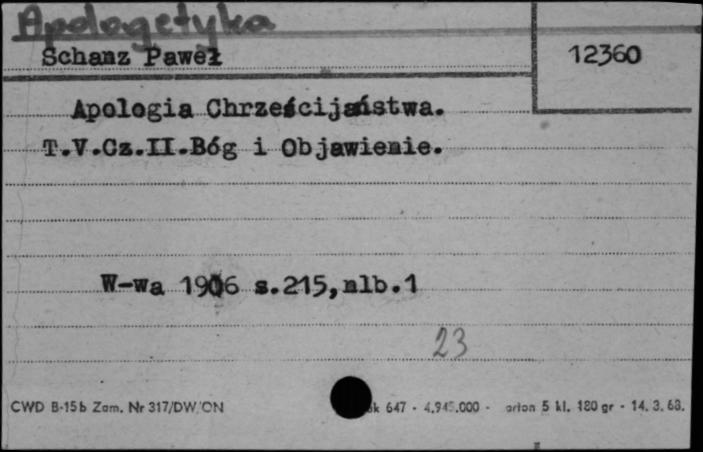 Apologetyka
Schanz Paweł
12360
Apologia Chrześcijaństwa.
T.V.Cz.II.Bóg i Objawienie.
W-wa 1906 s.215,nlb.1
23
CWD B-15b Zam. Nr 317/DW/ON
647 - 4.945.000 - 5 kl. 180 gr - 14. 3. 68.